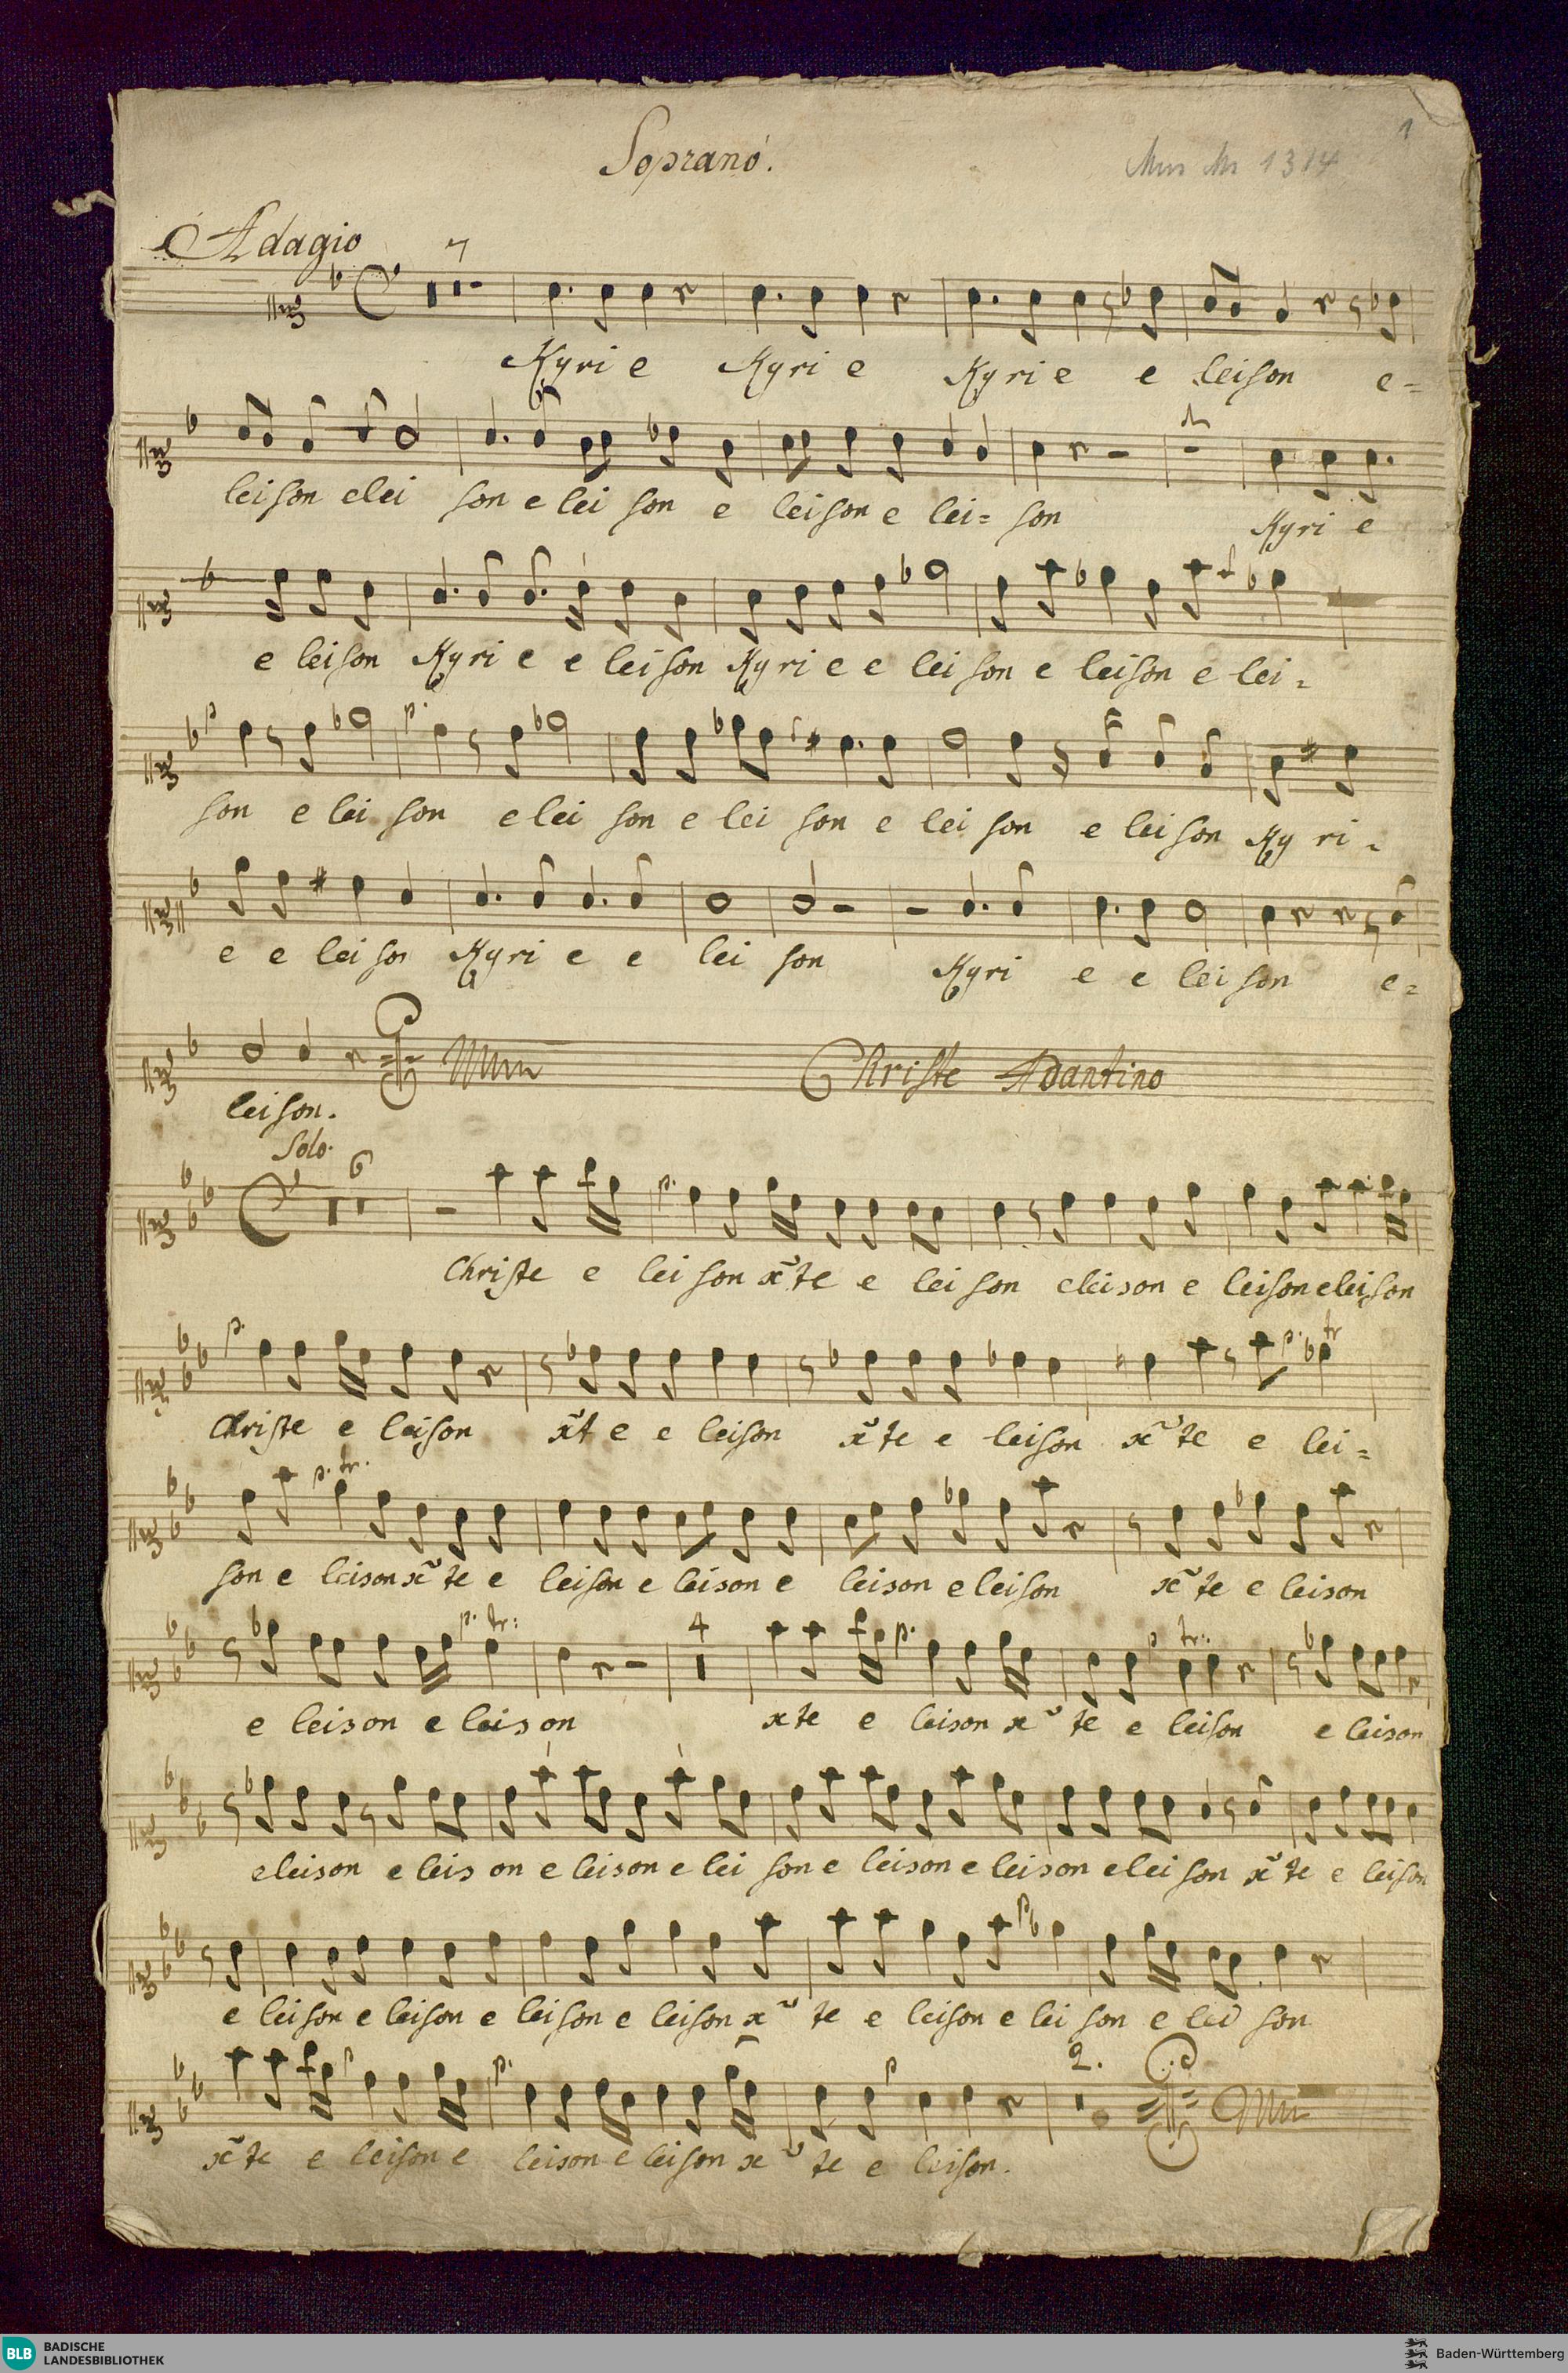 Soprano.
Mus Ms 1314
1
Adagio
7
Kyri e Kyri e Kyri e e leison e=
1
leison elei son e lei son e leison e lei= son Kyri e
e leison Kyri e e leison Kyri e e lei son e leison e lei=
son e lei son e lei son e lei son e lei son e leison Ky ri =
e e lei son Kyri e e lei son Kyri e e lei son e=
Christe Adantino
leison.
Solo.
6
Christe e lei son x̃te e lei son eleison e leison eleison
tr
Christe e leison x̃t e e leison x̃te e leison x̃te e lei=
p. tr.
son e leison x̃te e leison e leison e leison eleison x̃te e leison
p. tr:
4
p.
p tr:
e leison e leison xte e leison x̃ te e leison e leison
eleison e leis on e leison e lei son e leison e leison elei son x̃te e leison
e leison e leison e leison e leison x̃ te e leison e lei son e lei son
2.
x̃te e leison e leison e leison x̃ te e leison.
BLB BADISCHE
LANDESBIBLIOTHEK
Baden-Württemberg